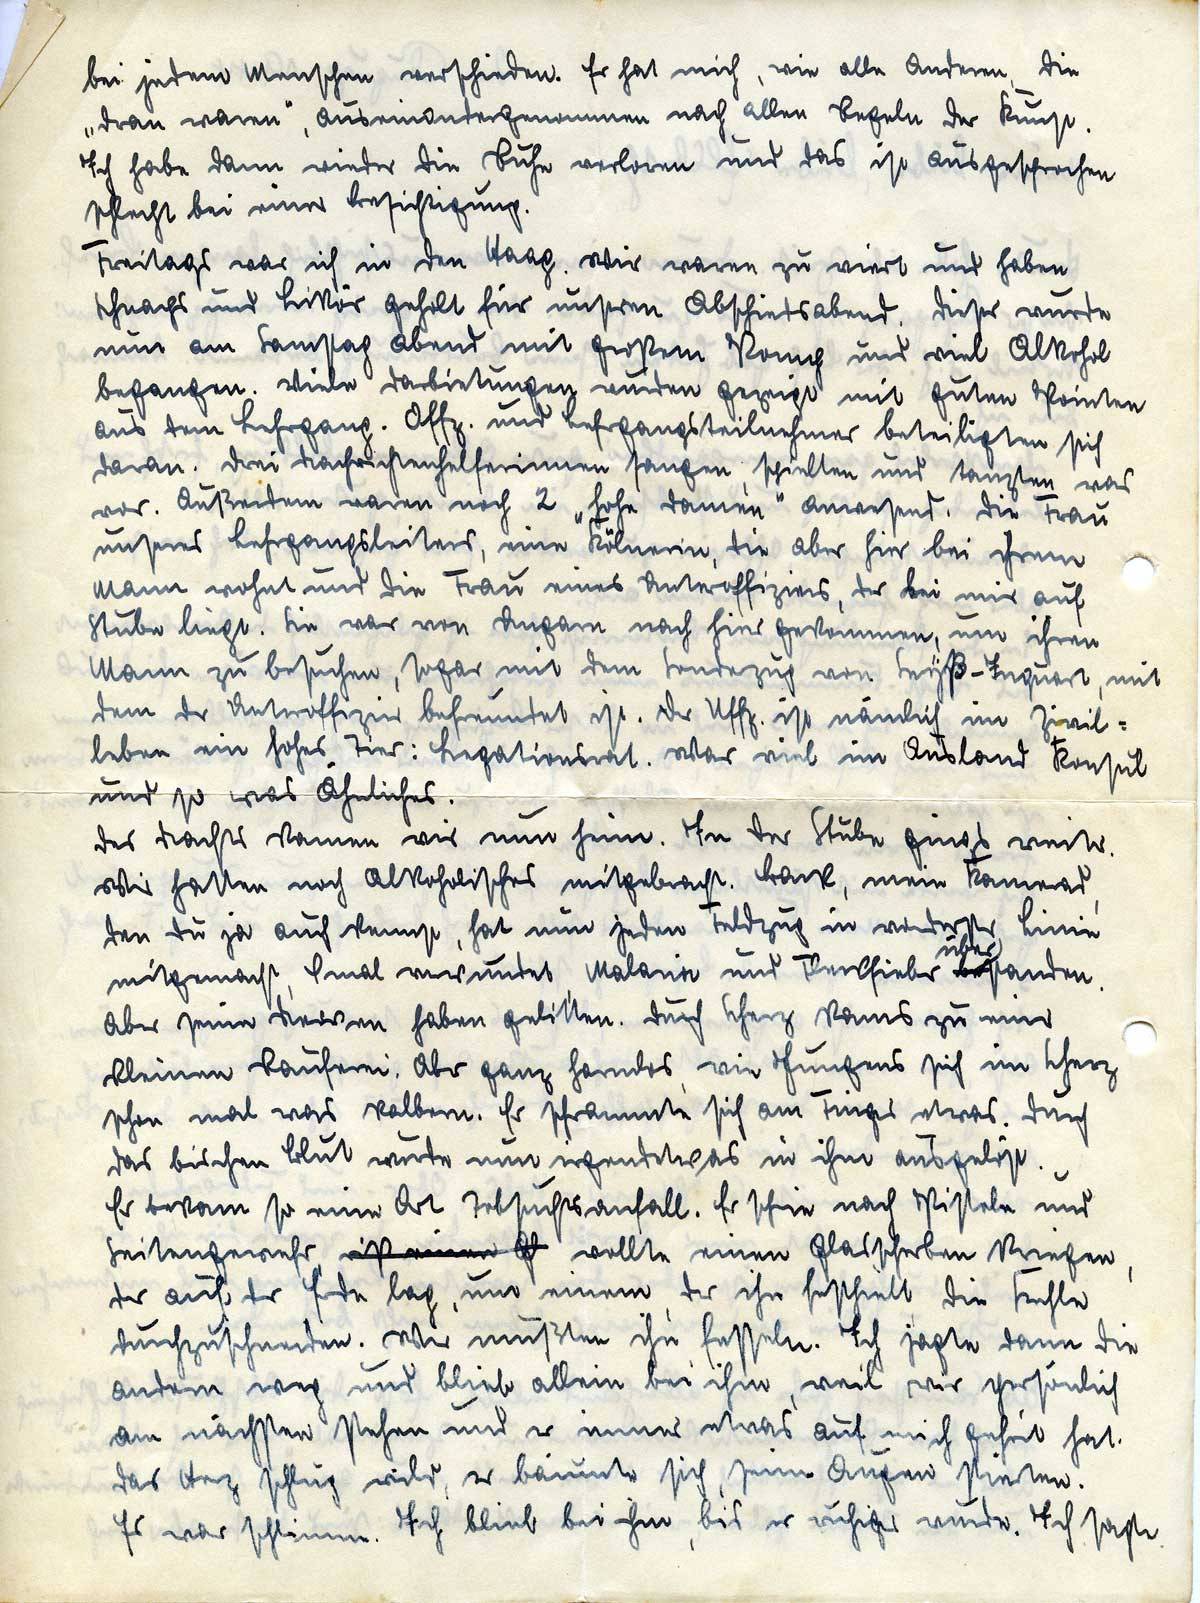 bei jedem Menschen verschieden. Er hat mich, wie alle Anderen, die
„dran waren", auseinandergenommen nach allen Regeln der Kunst.
Ich habe dann wieder die Ruhe verloren und das ist ausgesprochen
schlecht bei einer Besichtigung.
Freitags war ich in den Haag. Wir waren zu viert und haben
Schnaps und Likör geholt für unseren Abschiedsabend. Dieser wurde
nun am Samstag abend mit großem Pomp und viel Alkohol
begangen. Viele Darbietungen wurden gezeigt mit guten Pointen
aus dem Lehrgang. Offz. und Lehrgangsteilnehmer beteiligten sich
daran. Drei Nachrichtenhelferinnen sangen, spielten und tanzten was
vor. Außerdem waren noch 2 „hohe Damen" anwesend. Die Frau
unseres Lehrgangsleiters, eine Kölnerin, die aber hier bei ihrem
Mann wohnt und die Frau eines Unteroffiziers, der bei mir auf
Stube liegt. Sie war von Ungarn nach hier gekommen, um ihren
Mann zu besuchen, sogar mit dem Sonderzug von Seyß-Inquart, mit
dem der Unteroffizier befreundet ist. Der Uffz. ist nämlich im Zivil=
leben ein hohes Tier: Legationsrat. War viel im Ausland Konsul
und so was Ähnliches.
Des Nachts kamen wir nun heim. In der Stube gings weiter.
Wir hatten noch Alkoholisches mitgebracht. Bank, mein Kamerad,
den du ja auch kennst, hat nun jeden Feldzug in vorderster Linie
mitgemacht, mal verwundet, Malaria und Fleckfieber überstanden.
Aber seine Nerven haben gelitten. Durch Scherz kams zu einer
kleinen Rauferei. Aber ganz harmlos, wie Jungens sich im Scherz
schon mal was kalbern. Er schrammte sich am Finger etwas. Durch
das bischen Blut wurde nun irgendetwas in ihm ausgelöst.
Er bekam so eine Art Tobsuchtsanfall. Er schrie nach Pistole und
Seitengewehr, wollte einen Glasscherben kriegen,
der auf der Erde lag, um einem, der ihn festhielt die Kehle
durchzuschneiden. Wir mußten ihn fesseln. Ich jagte dann die
andern weg und blieb allein bei ihm, weil wir persönlich
am nächsten stehen und er immer etwas auf mich gehört hat.
Das Herz schlug wild, er bäumte sich, seine Augen stierten.
Es war schlimm. Ich blieb bei ihm, bis er ruhiger wurde. Ich sagte